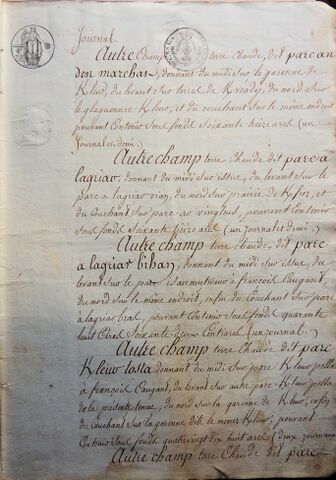 Journal.
Autre Champ terre Chaude, dit parc an
don marchas, donnant du midi sur la garenne de
Kleuo, du levant sur terre de Kvady, du nord sur
Kleuo, et du couchant sur le même endroit
pouvant Contenir sous fond soixante treize arel (un
Journal et demi.)
Autre champ terre Chaude dit parc a
lagriao, donnant du midi sur issue, du levant sur le
parc a lagriao vian, du nord sur prairie de K, et
du Couchant sur parc ar vinglus, pouvant Contenir
sous fond soixante treize arel (un journal et demi.)
Autre champ terre Chaude, dit parc
a lagriao bihan, donnant du midi sur issue, du
levant sur le parc à françois Caugant
du nord sur le même endroit, enfin du Couchant sur parc
a lagriao bras, pouvant Contenir sous fond quarante
huit arel soixante deux Centiarel (un journal.)
Autre champ terre Chaude dit parc
Kleuo tosta donnant du midi sur parc Kleuo pella
a françois Caugant, du levant sur autre parc Kleuo pella
de la présente tenue, du nord sur la garenne de Kleuo, enfin
du Couchant sur la garenne dite le menez Kleuo, pouvant
Contenir sous fond quatrevingt dix huit arel (deux journaux
Autre champ terre Chaude dit parc